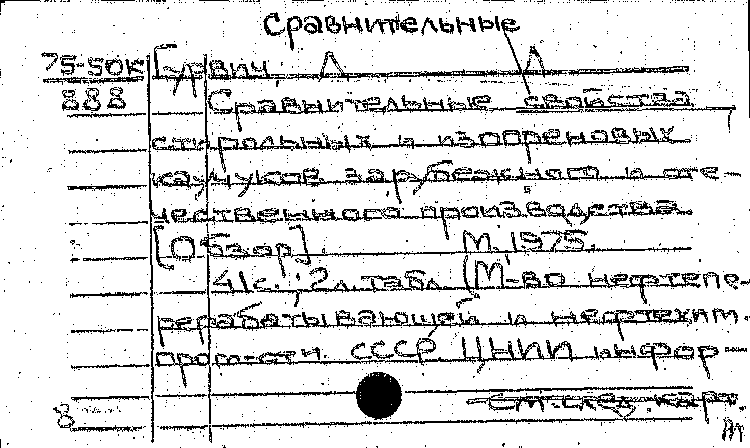 Сравнительные
75-50к [Гурвич, Л Л
888 Сравнительные свойства
стирольных и изопреновых
каучуков зарубежного и оте-
чественного производства.
[Обзор]. М., 1975.
41с.; 2л. табл. (М-во нефтепе-
рерабатывающей и нефтехим.
пром-сти СССР ЦНИИ инфор-
См. след. карт.
8
М